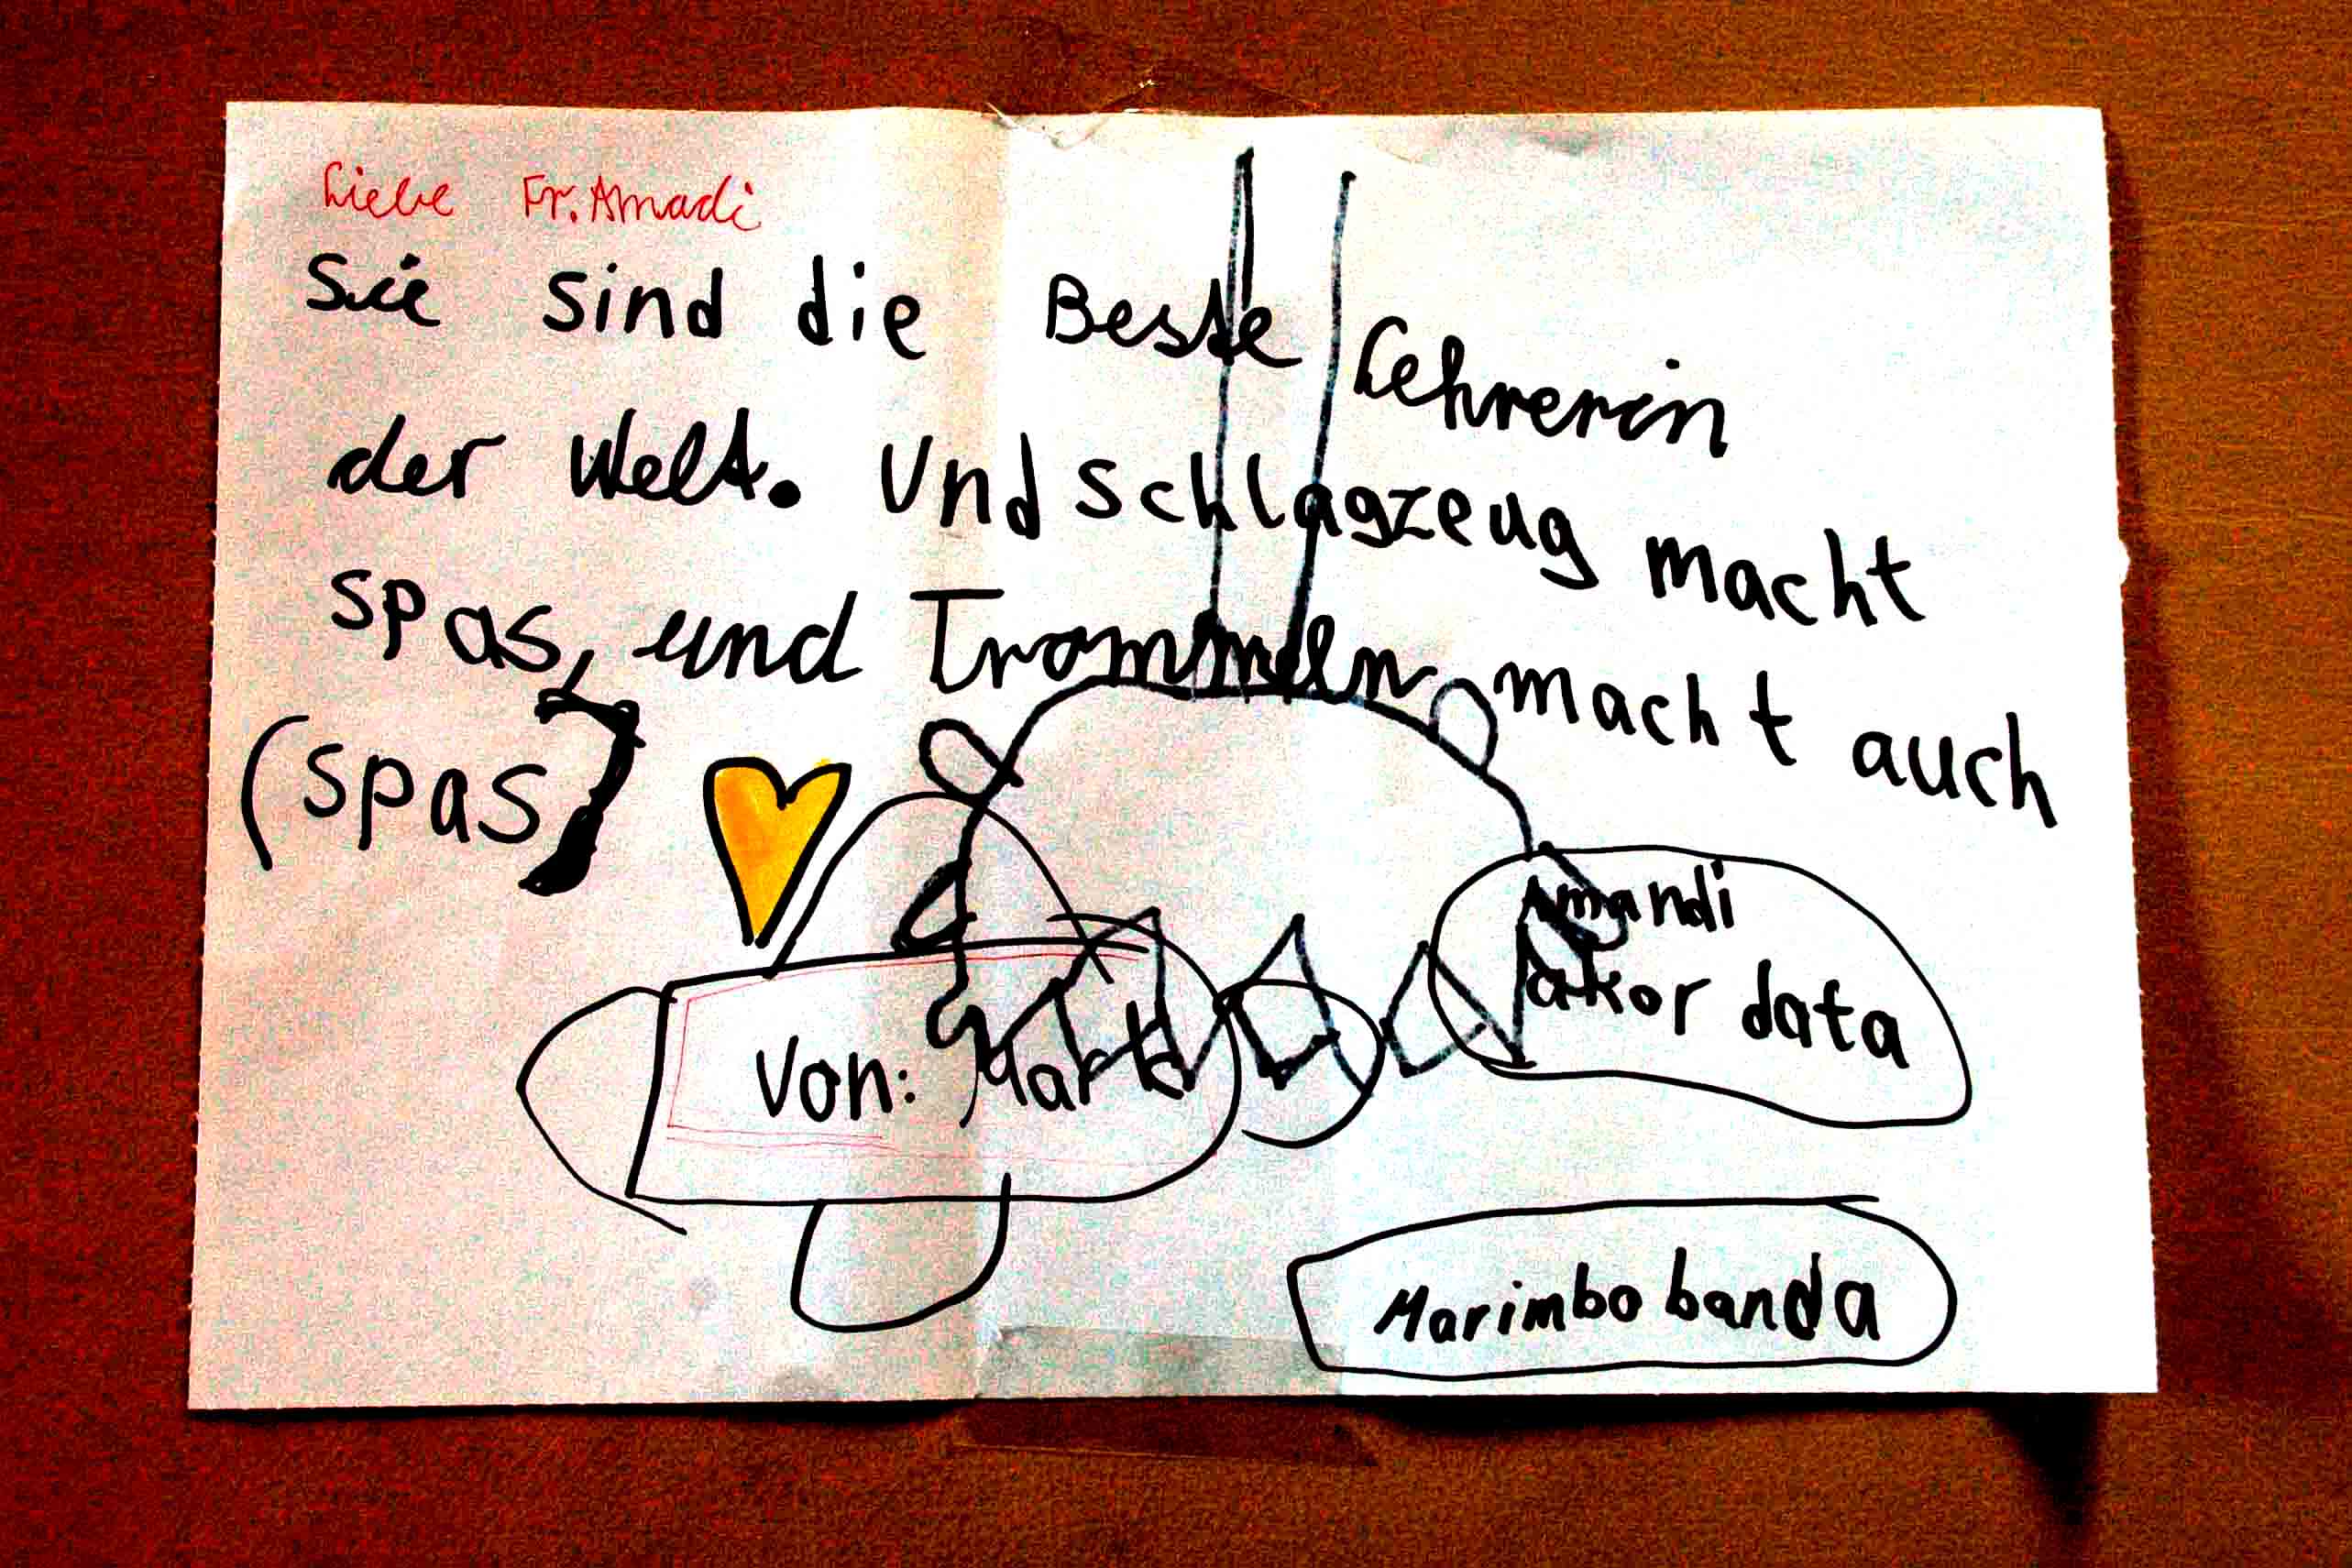 Liebe Fr. Amadi
Sie sind die Beste Lehrerin
der Welt. Und Schlagzeug macht
spas, und Trommeln macht auch
(spas)
Amandi
akor data
Von:
Marimbo banda